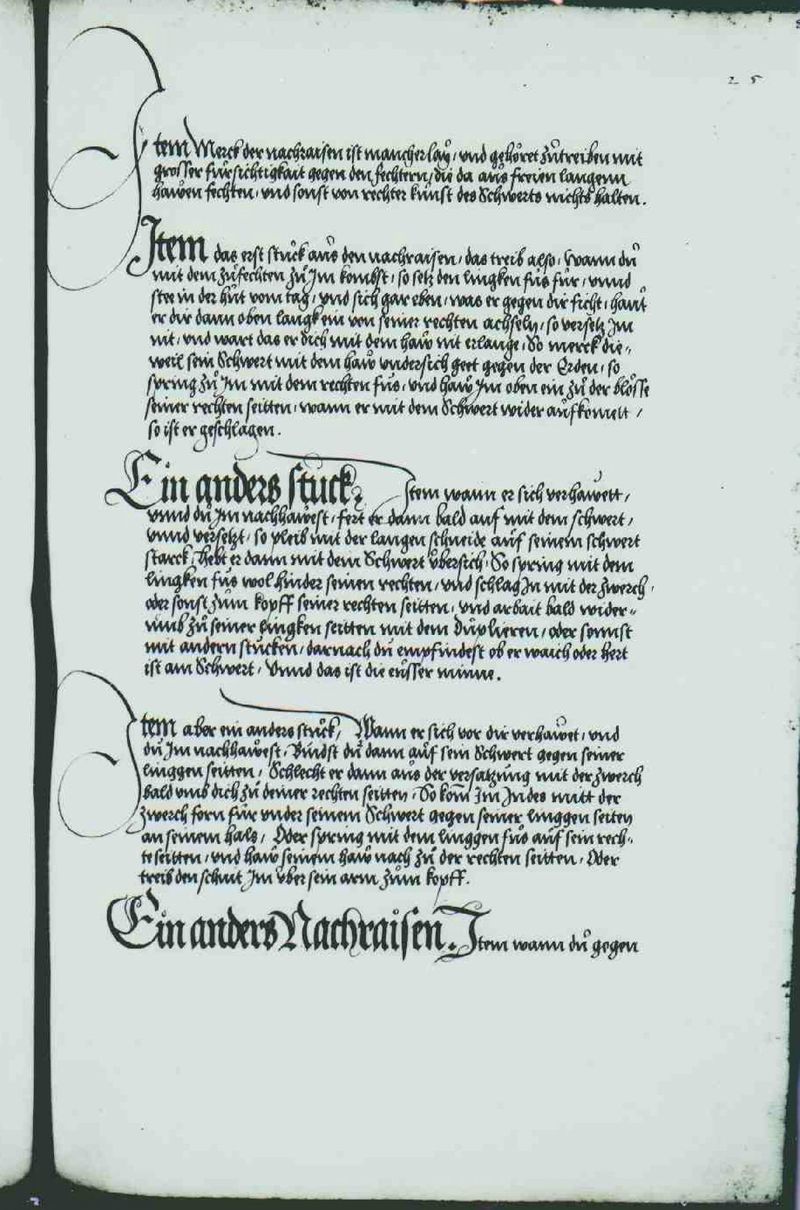 25
Item Merck der nachraisen ist mancherlaÿ / vnd gehöret zůtreiben mit
grosser fürsichtigkait gegen den fechtern / die da aus freien langenn
hawen fechten / vnd sonst von rechter kunst des Schwerts nichts halten.
Item das erst stuck aus den nachraisen / das treib also / Wann dů
mit dem zůfechten zů Jm kombst / so setz den lingken fůs für / vnnd
stee in der hůt vom tag / vnd sich gar eben / was er gegen dir ficht / haut
er dir dann oben langk ein von seiner rechten achseln / so versetz Jm
nit / vnd wart das er dich mit dem haw nit erlange / So merck die-
weil sein Schwert mit dem haw vndersich geet gegen der Erden / so
spring zů Jm mit dem rechten fůs / vnd haw Jm oben ein zů der blösse
seiner rechten seitten / wann er mit dem Schwert wider aufkomett /
so ist er geschlagen.
Ein anders stuck / Item wann er sich verhawett /
vnnd dů Jm nachhawest / fert er dann bald auf mit dem schwert /
vnnd versetzt / so pleib mit der langen schneide auf seinem schwert
starck / hebt er dann mit dem Schwert übersich / So spring mit dem
lingken fůs wol hinder seinen rechten / vnd schlag Jn mit der zwerch /
oder sonst zům kopff seiner rechten seitten / vnd arbait bald wider-
umb zů seiner lingken seitten mit dem důplieren / oder sonnst
mit andern stucken / darnach dů empfindest ob er waich oder hert
ist am Schwert / Vnnd das ist die eusser minne.
Item aber ein anders stuck / Wann er sich vor dir verhawet / vnd
dů Jm nachhawest / Bindst dů dann auf sein Schwert gegen seiner
linggen seitten / Schlecht er dann aus der versatzung mit der zwerch
bald vmb dich zů deiner rechten seitten / So kom Jm Jndes mitt der
zwerch forn für vnder seinem Schwert gegen seiner linggen seiten
an seinem hals / Oder spring mit dem linggen fůs auf sein rech-
te seitten / vnd haw seinem haw nach zů der rechten seitten / Oder
treib den schnit Jm über sein arm zům kopff.
Ein anders Nachraisen. Item wann dů gegen